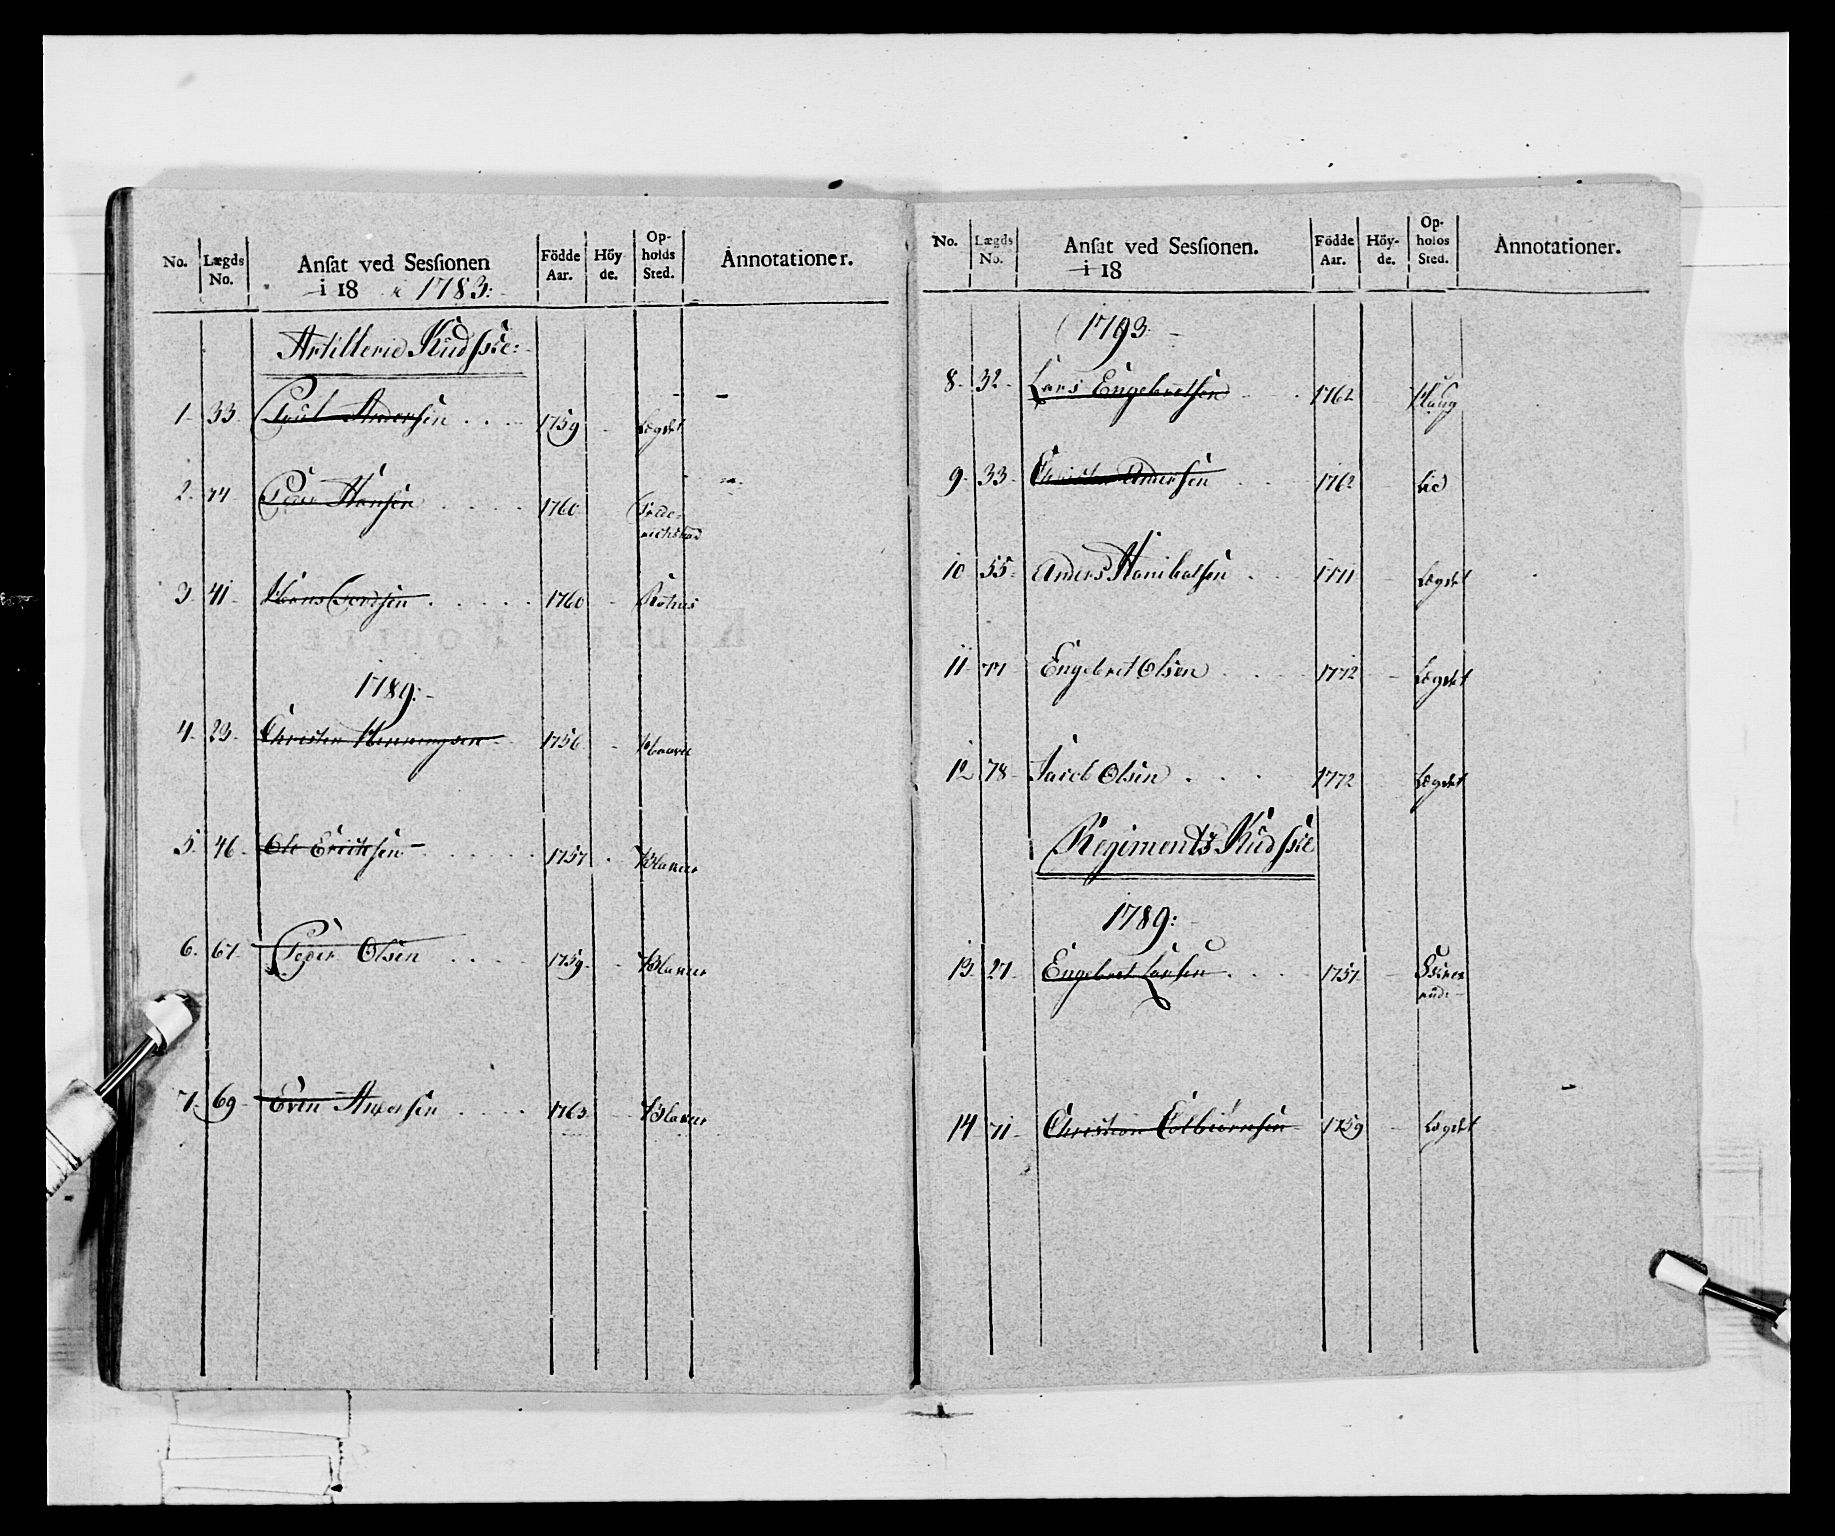 No. Lægds No. Ansat ved Sessionen i 18 i 1783: Födde Aar. Höy de. Op- holds Sted. Annotationer.
Artillerie Kudske:
1. 33. Poul Andersen 1759 Lægdet
2. 74 Peder Hansen 1760 Frede- richstad
3. 41. Hans 1760
1789:
4. 23. Christen Henningsen 1756
5. 46. Ole Erichsen 1757
6. 67. Peder Olsen 1759
7. 69 Even Andersen 1763
No. Lægds No. Ansat ved Sessionen. i 18 Födde Aar. Höy- de. Op- holds Sted. Annotationer.
1793.
8. 32. Lars Engebretsen 1762 Haug
9. 33. Christen Andersen 1762 Lie
10 55. Anders Hanibalsen 1771 Lægdet
11 77 Engebret Olsen 1772 Lægdet
12 78 Jacob Olsen 1772 Lægdet
Regiments Kudske
1789:
13 27. Engebret Larsen 1757
14 71 Christian Colbiörnsen 1759 Lægdet